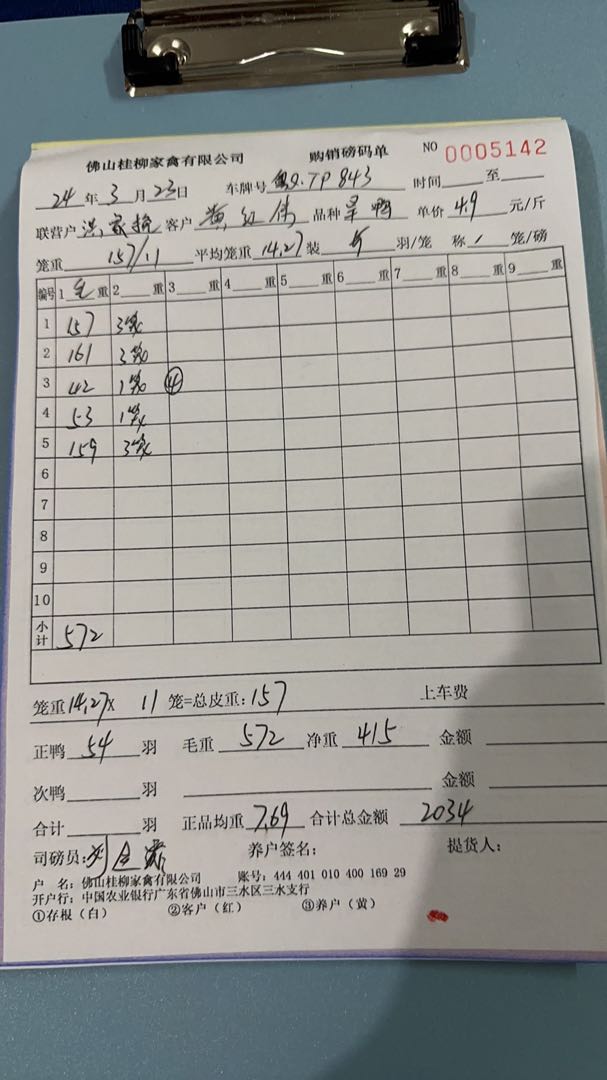 佛山桂柳家禽有限公司 购销磅码单 NO 0005142
24年3月23日 车牌号 TP843 时间 至
联营户 洪家 客户 黄红伟 品种 鸭 单价 4.9 元/斤
笼重 157/11 平均笼重 14.27 装 羽/笼 称 笼/磅
编号 1 毛 重 2 重 3 重 4 重 5 重 6 重 7 重 8 重 9 重
1 157 3
2 161 3
3 42 1 ④
4 53 1
5 159 3
6
7
8
9
10
小计 572
笼重 14.27 × 11 笼=总皮重: 157 上车费
正鸭 54 羽 毛重 572 净重 415 金额
次鸭 羽 金额
合计 羽 正品均重 7.69 合计总金额 2034
司磅员: 养户签名: 提货人:
户 名: 佛山桂柳家禽有限公司 账号: 444 401 010 400 169 29
开户行: 中国农业银行广东省佛山市三水区三水支行
①存根（白） ②客户（红） ③养户（黄）